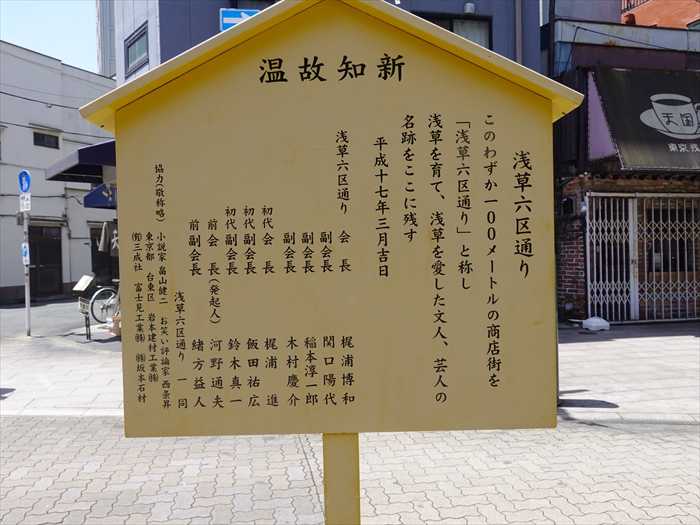 温故知新
浅草六区通り
このわずか一〇〇メートルの商店街を
「浅草六区通り」と称し
浅草を育て、浅草を愛した文人、芸人の
名跡をここに残す
平成十七年三月吉日
浅草六区通り 会長 梶浦博和
副会長 関口陽代
副会長 稲本淳一郎
副会長 木村慶介
初代会長 梶浦進
初代副会長 飯田祐広
初代副会長 鈴木真一
前会長(発起人) 河野通夫
前副会長 緒方益人
浅草六区通り 一同
協力(敬称略) 小説家 畠山健二 お笑い評論家 西条昇
東京都 台東区 岩本建材工業㈱
㈲三成社 富士見工業㈱ ㈱坂本石材
天国
東京浅